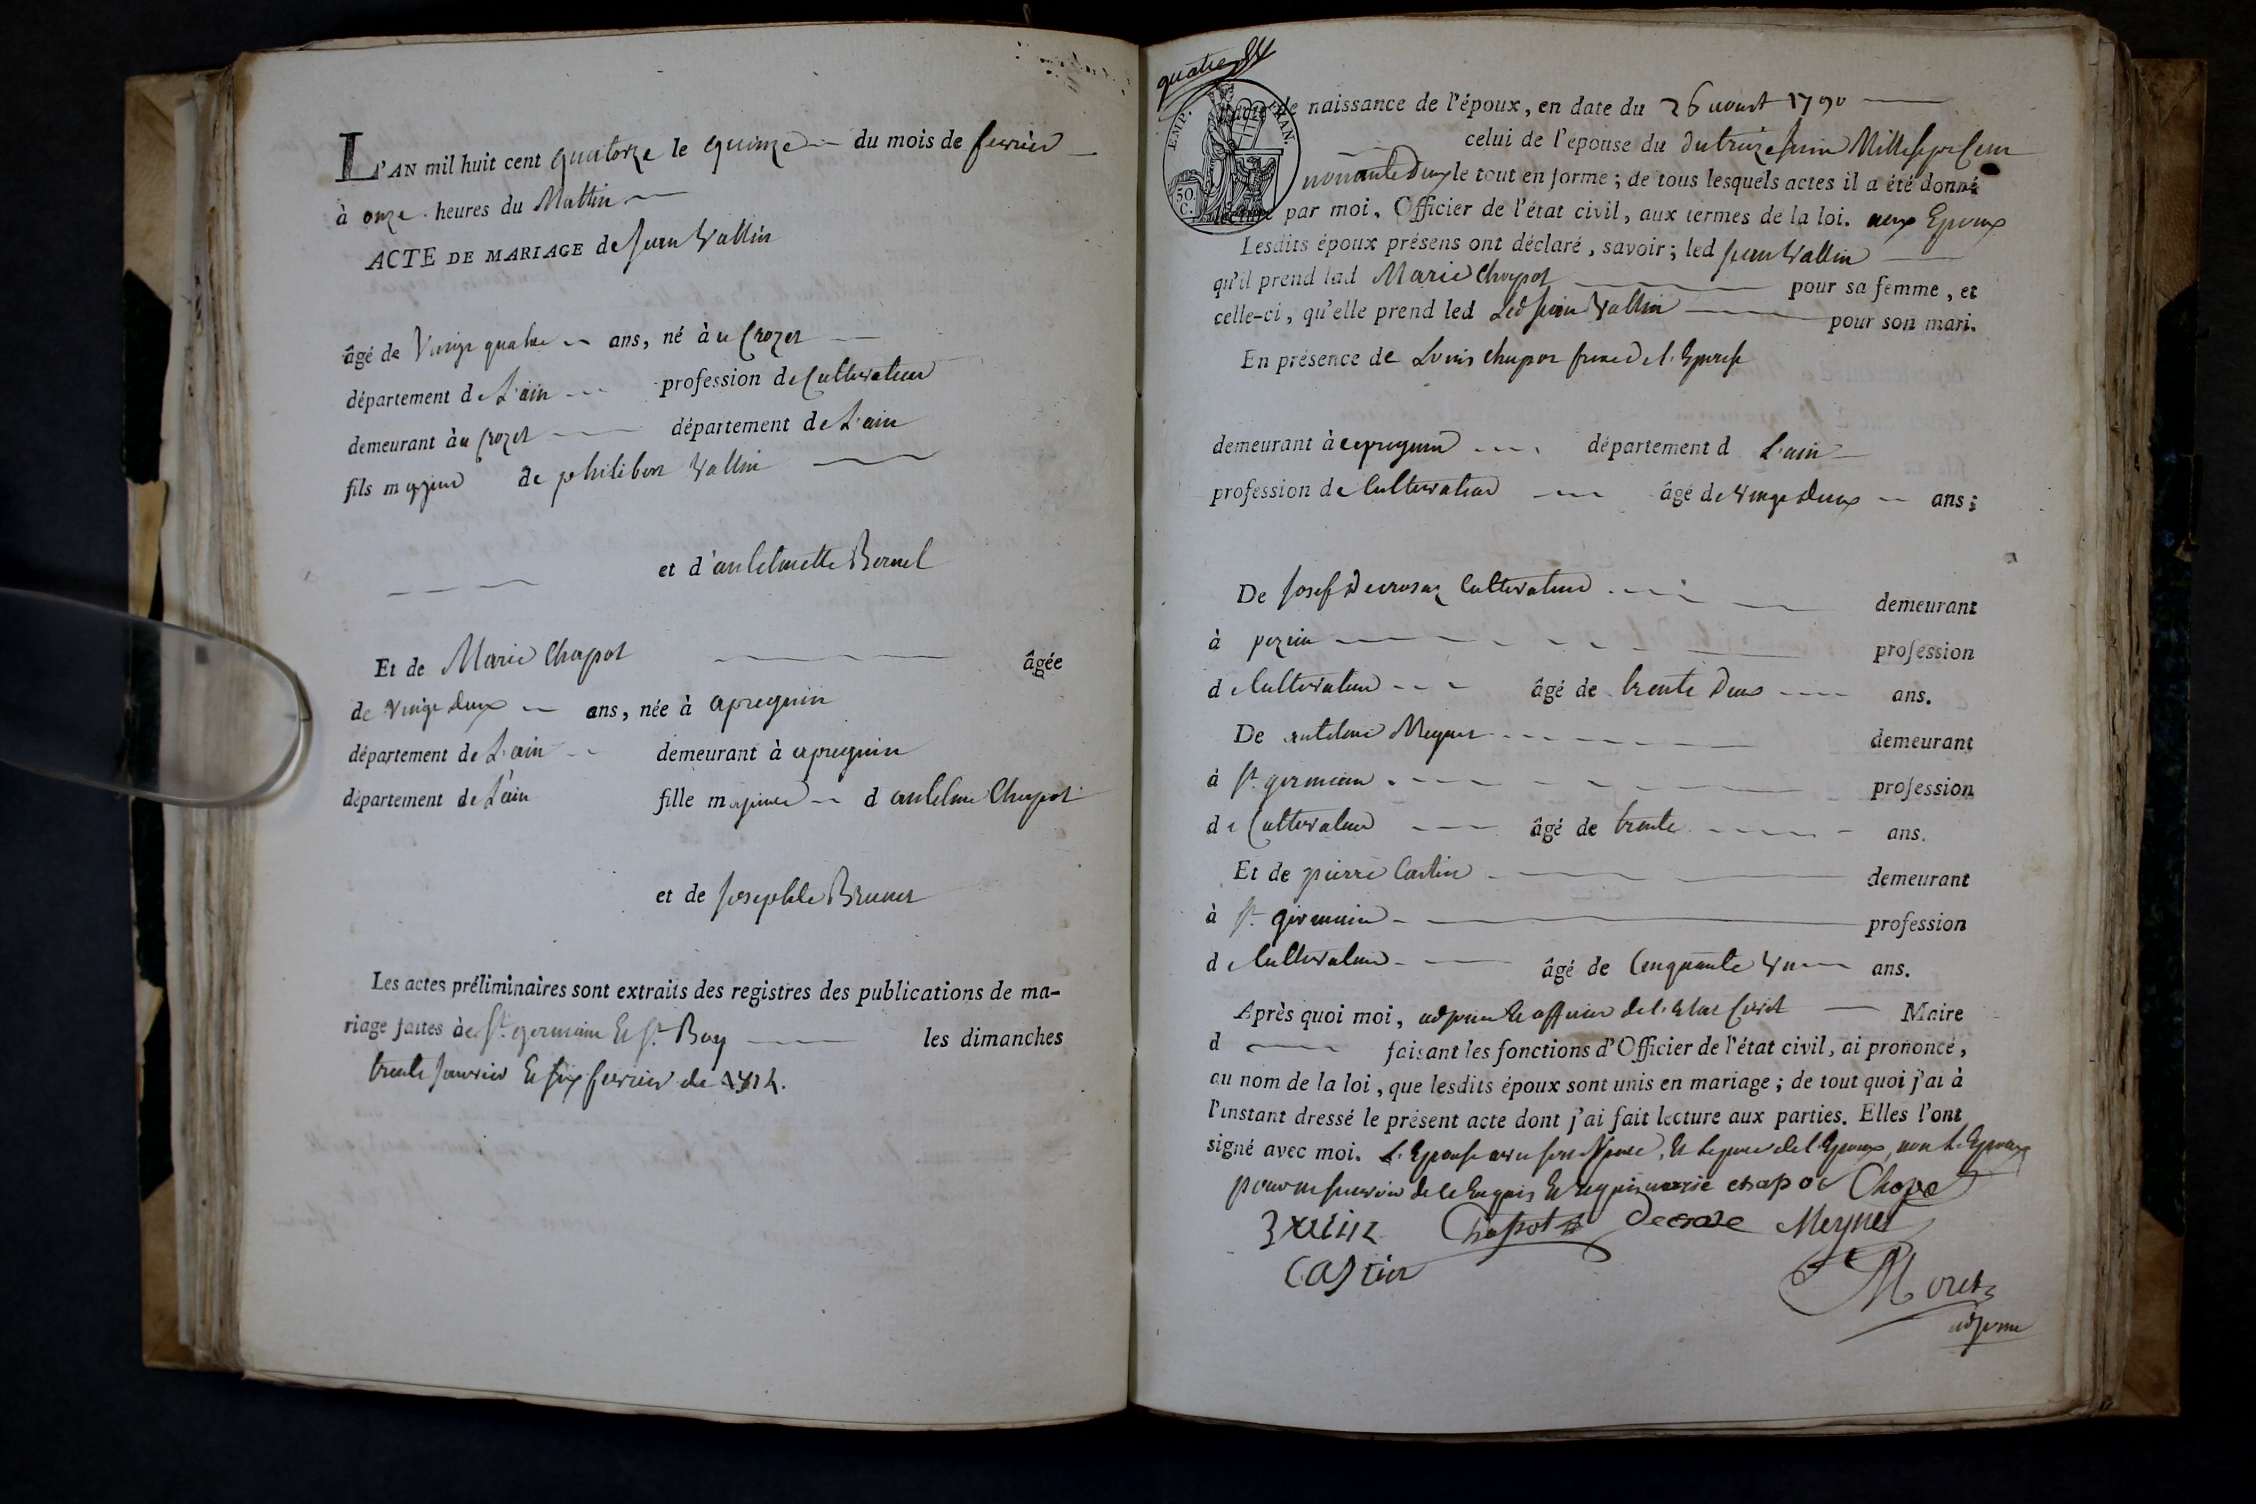 L'AN mil huit cent quatorze le quinze du mois de fevrier
à onze heures du Mattin
ACTE DE MARIAGE de Jean Vallin
âgé de Vingt quatre ans, né à u Crozet
département de L'ain profession de Cultivateur
demeurant à u Crozet département de L'ain
fils majeur de philibert Vallin
et d'antelmette Bornel
Et de Marie Chapot âgée
de Vingt deux ans, née à apregnin
département de L'ain demeurant à apregnin
département de L'ain fille majeure d antelme Chapot
et de Josephte Brunet
Les actes préliminaires sont extraits des registres des publications de ma-
riage faites à St germain Et St Boy les dimanches
trente Janvier Et six fevrier de 1814.
quatre
EMP. FRAN.
50 C.
de naissance de l'époux, en date du 26 aoust 1790
celui de l'épouse du du treize juin Mille sept Cent
nonante deux le tout en forme ; de tous lesquels actes il a été donné
lecture par moi, Officier de l'état civil, aux termes de la loi. aux Epoux
Lesdits époux présens ont déclaré, savoir ; led Jean Vallin
qu'il prend lad Marie Chapot pour sa femme, et
celle-ci, qu'elle prend led Led Jean Vallin pour son mari.
En présence de Louis Chapot frere de l'Epouse
demeurant à apregnin département d L'ain
profession de Cultivateur âgé de vingt deux ans ;
De Josef Decrosaz Cultivateur demeurant
à pezieu profession
de Cultivateur âgé de trente Deux ans.
De antelme Meynet demeurant
à St germain profession
de Cultivateur âgé de trente ans.
Et de pierre Castin demeurant
à St germain profession
de Cultivateur âgé de Cinquante un ans.
Après quoi moi, adjoint et officier de l'etat Civil Maire
d faisant les fonctions d'Officier de l'état civil, ai prononcé,
au nom de la loi, que lesdits époux sont unis en mariage ; de tout quoi j'ai à
l'instant dressé le présent acte dont j'ai fait lecture aux parties. Elles l'ont
signé avec moi. L'Epouse avec son pere, Et le pere de l'Epoux, non L'Epoux
pour ne savoir de ce Enquis Et requis marie chapot Chapot
Chapot Decrose Meynet
Castin
Moret
adjoint